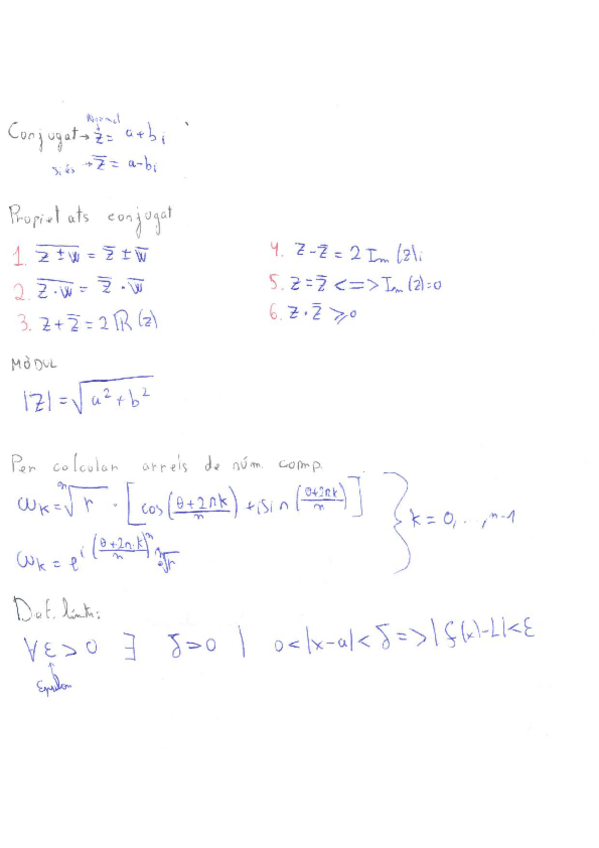 Normal
Conjugat → z = a + bi
→ z̄ = a - bi
Propietats conjugat
1. \overline{z ± w} = z̄ ± w̄
2. \overline{z · w} = z̄ · w̄
3. z + z̄ = 2 ℝ (z)
4. z - z̄ = 2 Im (z)i
5. z = z̄ <=> Im (z) = 0
6. z · z̄ ≥ 0
MÒDUL
|z| = √(a² + b²)
Per calcular arrels de núm. comp.
ωk = ⁿ√r · [cos((θ + 2πk)/n) + i sin((θ + 2πk)/n)]
ωk = e^{i((θ + 2π·k)/n)} ⁿ√r
} k = 0, ..., n-1
Def. límit:
∀ε > 0 ∃ δ > 0 | 0 < |x - a| < δ => |f(x) - L| < ε
Epsilon